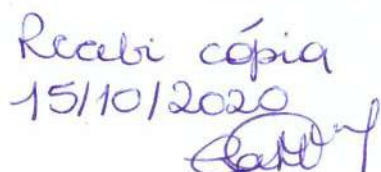 Recebi cópia
15/10/2020